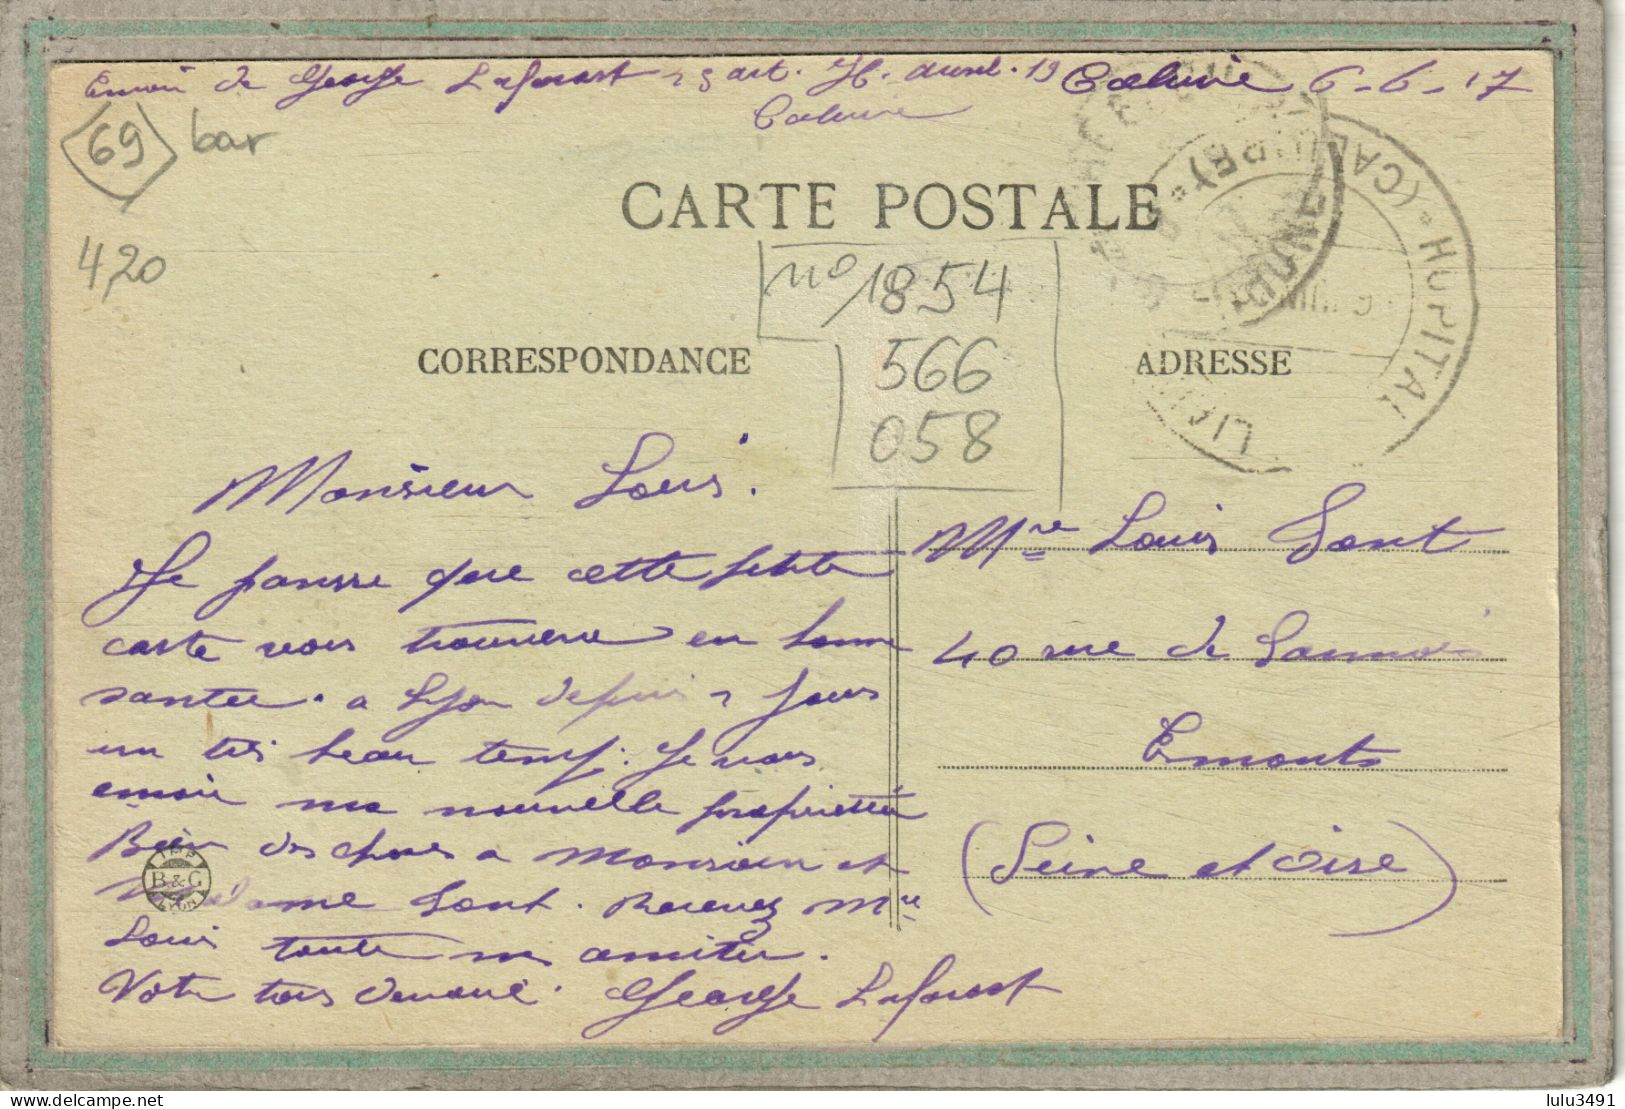 Envoi de George Laforest 25 art. H. auxil. 19 Caluire 6-6-17
Caluire
69 bar
4,20
CARTE POSTALE
no 1854
566
058
CORRESPONDANCE
ADRESSE
HOPITAL (CA
Monsieur Louis.
Je pansse que cette petite
carte vous trouvera en bonne
santée. a Lyon depuis 2 jours
un très beau temp. Je vous
envoie ma nouvelle propriettée
Bien des choses a Monsieur et
Madame Pont. Recevez Mre
Louis toute mes amitié.
Votre tous devoué. George Laforest
IMP
B&G
LYON
Mre Louis Pont
40 rue de Sannois
Ermonts
(Seine et oise)
lulu3491